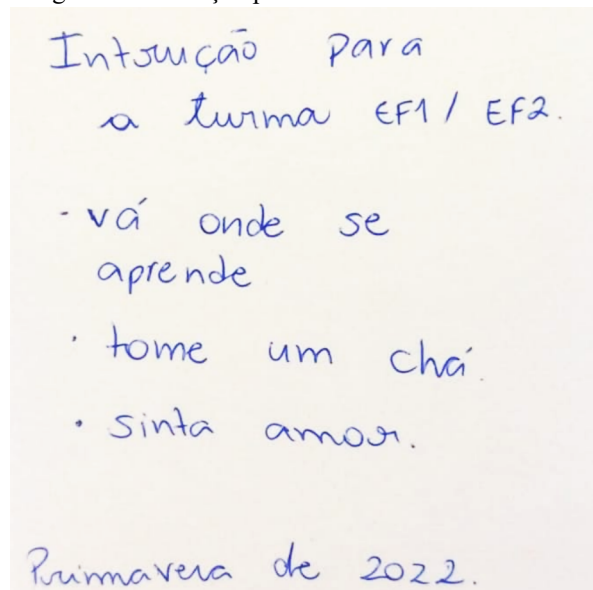 Intrução para
a turma EF1 / EF2.
· vá onde se
aprende
· tome um chá.
· sinta amor.
Primavera de 2022.